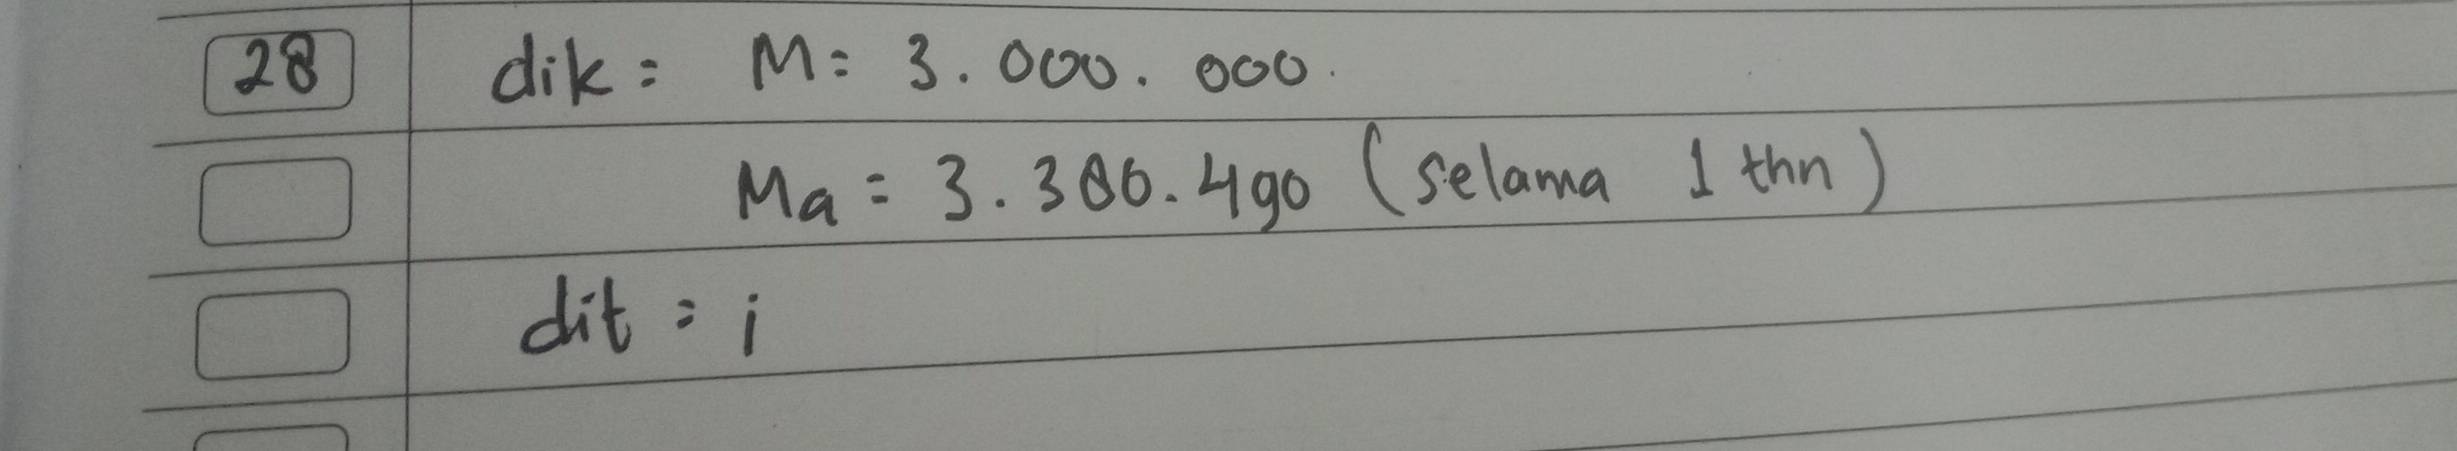 28 dik = M = 3.000.000.
Ma = 3.386.490 (selama 1 thn)
dit = i